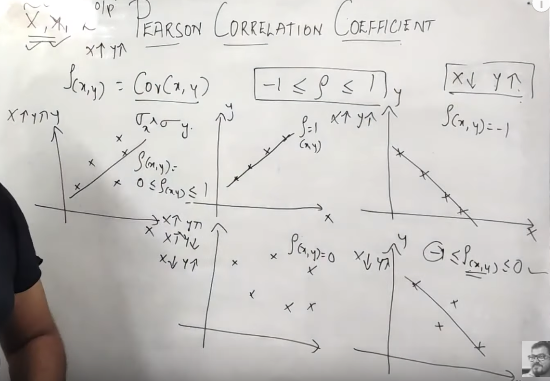 X, X₁ ~ o/p PEARSON CORRELATION COEFFICIENT
X↑ Y↑
ρ(x,y) = Cov(x,y)
σx * σy
-1 ≤ ρ ≤ 1
X↓ Y↑
X↑ Y↑ y
ρ(x,y)=
0 ≤ ρ(x,y) ≤ 1
x
y
ρ=1
(x,y)
x
X↑ Y↑
y
ρ(x,y) = -1
x
X↑ Y↑
X↑ Y↓
X↓ Y↑
ρ(x,y)=0
X↓ Y↑
y
-1 ≤ ρ(x,y) ≤ 0